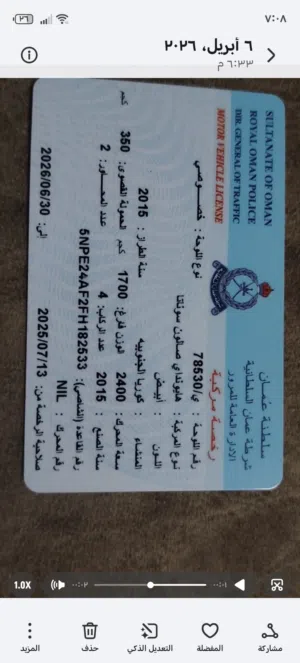 ٧:٠٨
٢٦
٦ أبريل، ٢٠٢٦
٦:٣٣ م
SULTANATE OF OMAN
ROYAL OMAN POLICE
DIR. GENERAL OF TRAFFIC
MOTOR VEHICLE LICENSE
سلطنة عمان
شرطة عمان السلطانية
الادارة العامة للمرور
رخصة مركبة
رقم اللوحة : ي/78530
نوع اللوحة : خصوصي
نوع المركبة : هايونداي صالون سوناتا
اللون : ابيض
المنشاء : كوريا الجنوبيه
سنة الطراز : 2015
سعة المحرك: 2400
الوزن فارغ: 1700 كجم
الحمولة القصوى: 350 كجم
سنة الصنع : 2015
عدد الركاب: 4
عدد المحاور: 2
رقم القاعدة (الشاصي): 5NPE24AF2FH182533
رقم المحرك : NIL
صلاحية الرخصة من: 2025/07/13
إلى: 2026/06/30
1.0X
٠٠:٠٢
٠٠:٠١
مشاركة
المفضلة
التعديل الذكي
حذف
المزيد